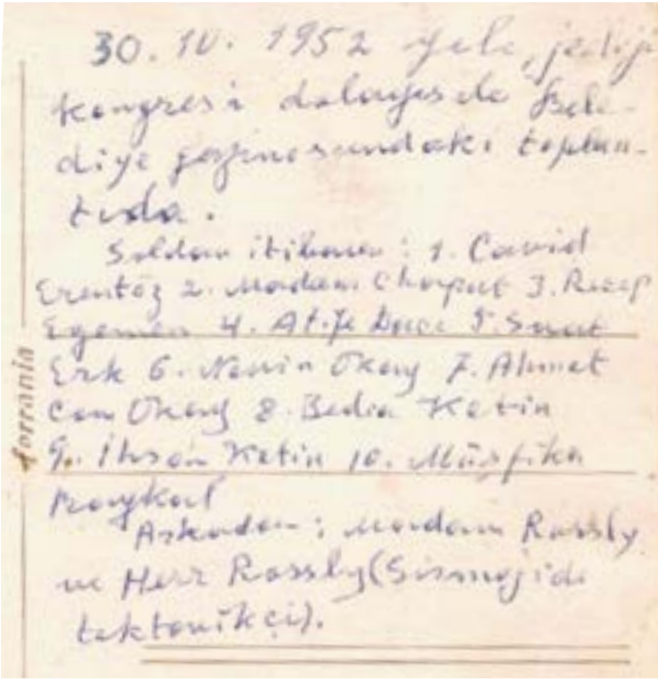 30. IV. 1952 Jeoloji
kongresi dolayısıyla Bele-
diye gazinosundaki toplan-
tıda.
Soldan itibaren: 1. Cavid
Erentöz 2. Madam Chaput 3. Recep
Egemen 4. Atife 5. Suat
Erk 6. Nevin Okay 7. Ahmet
Can Okay 8. Bedia Ketin
9. İhsan Ketin 10. Müşfika
Baykal
Arkadan: Madam Rossly
ve Herr Rossly (
tektonikçi).
ferrania